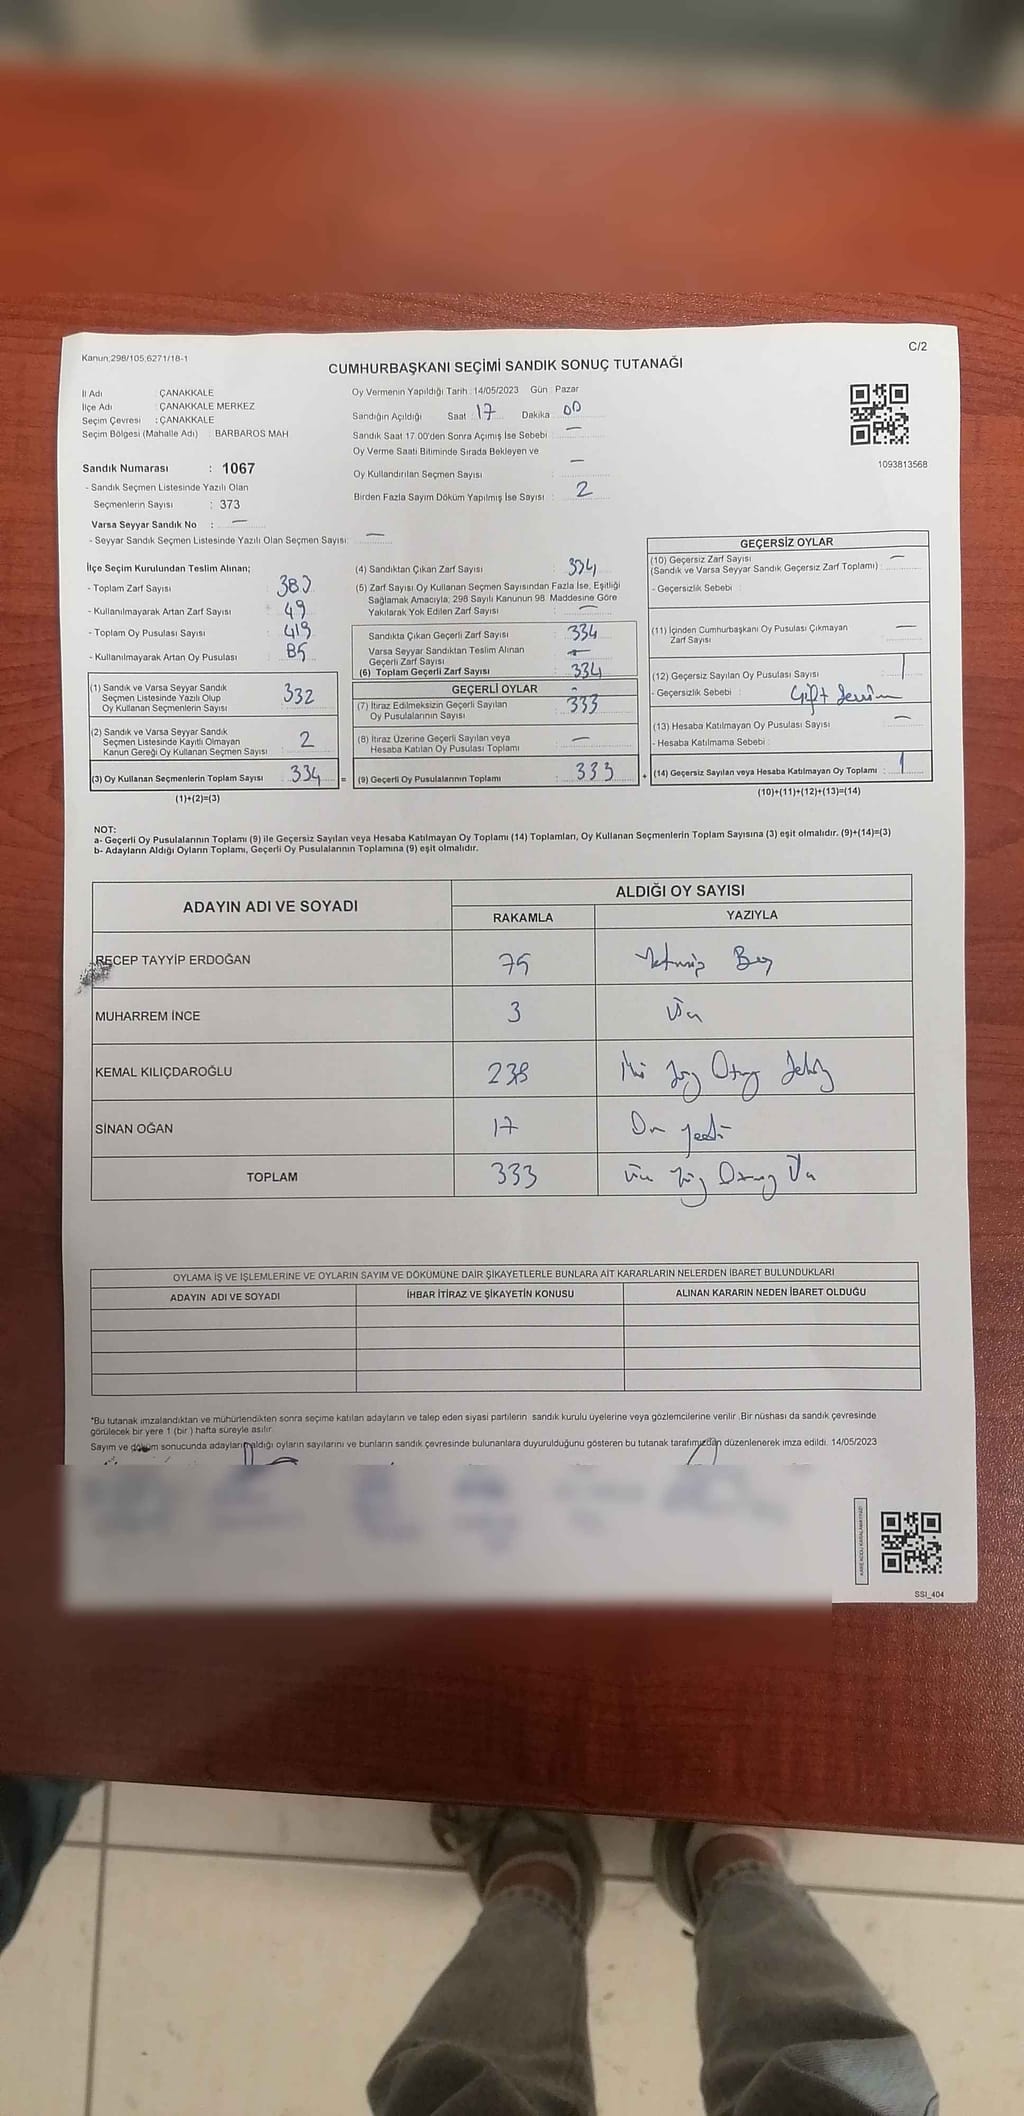 Kanun;298/105;6271/18-1
C/2
CUMHURBAŞKANI SEÇİMİ SANDIK SONUÇ TUTANAĞI
İl Adı : ÇANAKKALE
İlçe Adı : ÇANAKKALE MERKEZ
Seçim Çevresi : ÇANAKKALE
Seçim Bölgesi (Mahalle Adı) : BARBAROS MAH
Sandık Numarası : 1067
- Sandık Seçmen Listesinde Yazılı Olan
Seçmenlerin Sayısı : 373
Varsa Seyyar Sandık No : —
- Seyyar Sandık Seçmen Listesinde Yazılı Olan Seçmen Sayısı: —
Oy Vermenin Yapıldığı Tarih : 14/05/2023 Gün : Pazar
Sandığın Açıldığı Saat : 17 Dakika : 00
Sandık Saat 17.00'den Sonra Açımış İse Sebebi : —
Oy Verme Saati Bitiminde Sırada Bekleyen ve
Oy Kullandırılan Seçmen Sayısı : —
Birden Fazla Sayım Döküm Yapılmış İse Sayısı : 2
1093813568
İlçe Seçim Kurulundan Teslim Alınan;
- Toplam Zarf Sayısı : 383
- Kullanılmayarak Artan Zarf Sayısı : 49
- Toplam Oy Pusulası Sayısı : 419
- Kullanılmayarak Artan Oy Pusulası : 85
(1) Sandık ve Varsa Seyyar Sandık
Seçmen Listesinde Yazılı Olup
Oy Kullanan Seçmenlerin Sayısı : 332
(2) Sandık ve Varsa Seyyar Sandık
Seçmen Listesinde Kayıtlı Olmayan
Kanun Gereği Oy Kullanan Seçmen Sayısı : 2
(3) Oy Kullanan Seçmenlerin Toplam Sayısı : 334 =
(1)+(2)=(3)
(4) Sandıktan Çıkan Zarf Sayısı : 334
(5) Zarf Sayısı Oy Kullanan Seçmen Sayısından Fazla İse, Eşitliği
Sağlamak Amacıyla; 298 Sayılı Kanunun 98. Maddesine Göre
Yakılarak Yok Edilen Zarf Sayısı : —
Sandıkta Çıkan Geçerli Zarf Sayısı : 334
Varsa Seyyar Sandıktan Teslim Alınan
Geçerli Zarf Sayısı : —
(6) Toplam Geçerli Zarf Sayısı : 334
GEÇERLİ OYLAR
(7) İtiraz Edilmeksizin Geçerli Sayılan
Oy Pusulalarının Sayısı : 333
(8) İtiraz Üzerine Geçerli Sayılan veya
Hesaba Katılan Oy Pusulası Toplamı : —
(9) Geçerli Oy Pusulalarının Toplamı : 333 +
GEÇERSİZ OYLAR
(10) Geçersiz Zarf Sayısı
(Sandık ve Varsa Seyyar Sandık Geçersiz Zarf Toplamı) : —
- Geçersizlik Sebebi :
(11) İçinden Cumhurbaşkanı Oy Pusulası Çıkmayan
Zarf Sayısı : —
(12) Geçersiz Sayılan Oy Pusulası Sayısı : 1
- Geçersizlik Sebebi : Çift
(13) Hesaba Katılmayan Oy Pusulası Sayısı : —
- Hesaba Katılmama Sebebi :
(14) Geçersiz Sayılan veya Hesaba Katılmayan Oy Toplamı : 1
(10)+(11)+(12)+(13)=(14)
NOT:
a- Geçerli Oy Pusulalarının Toplamı (9) ile Geçersiz Sayılan veya Hesaba Katılmayan Oy Toplamı (14) Toplamları, Oy Kullanan Seçmenlerin Toplam Sayısına (3) eşit olmalıdır. (9)+(14)=(3)
b- Adayların Aldığı Oyların Toplamı, Geçerli Oy Pusulalarının Toplamına (9) eşit olmalıdır.
ADAYIN ADI VE SOYADI
ALDIĞI OY SAYISI
RAKAMLA YAZIYLA
RECEP TAYYİP ERDOĞAN 75 Yetmiş Beş
MUHARREM İNCE 3 Üç
KEMAL KILIÇDAROĞLU 238 İki Yüz Otuz Sekiz
SİNAN OĞAN 17 On Yedi
TOPLAM 333 Üç Yüz Otuz Üç
OYLAMA İŞ VE İŞLEMLERİNE VE OYLARIN SAYIM VE DÖKÜMÜNE DAİR ŞİKAYETLERLE BUNLARA AİT KARARLARIN NELERDEN İBARET BULUNDUKLARI
ADAYIN ADI VE SOYADI İHBAR İTİRAZ VE ŞİKAYETİN KONUSU ALINAN KARARIN NEDEN İBARET OLDUĞU
*Bu tutanak imzalandıktan ve mühürlendikten sonra seçime katılan adayların ve talep eden siyasi partilerin sandık kurulu üyelerine veya gözlemcilerine verilir .Bir nüshası da sandık çevresinde
görülecek bir yere 1 (bir ) hafta süreyle asılır.
Sayım ve döküm sonucunda adayların aldığı oyların sayılarını ve bunların sandık çevresinde bulunanlara duyurulduğunu gösteren bu tutanak tarafımızdan düzenlenerek imza edildi. 14/05/2023
SSI_404